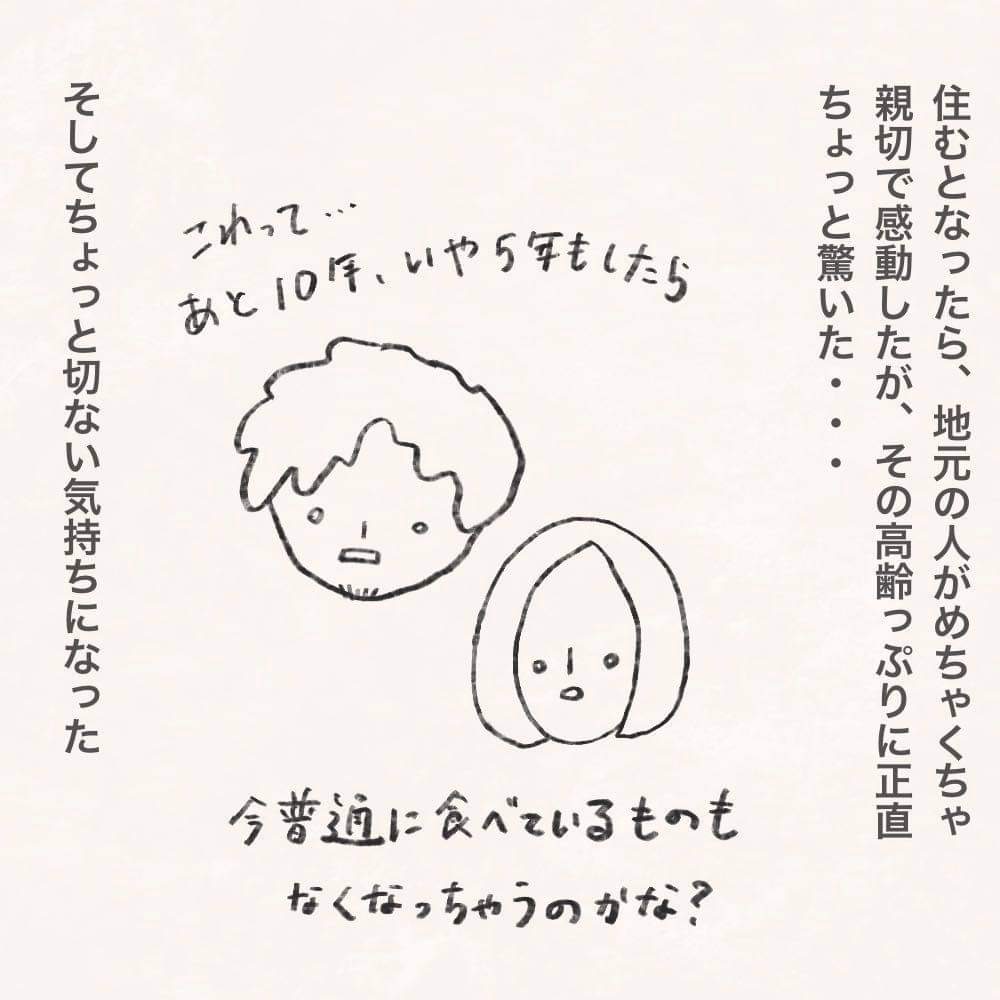 住むとなったら、地元の人がめちゃくちゃ
親切で感動したが、その高齢っぷりに正直
ちょっと驚いた・・・
これって…
あと10年、いや5年もしたら
今普通に食べているものも
なくなっちゃうのかな？
そしてちょっと切ない気持ちになった